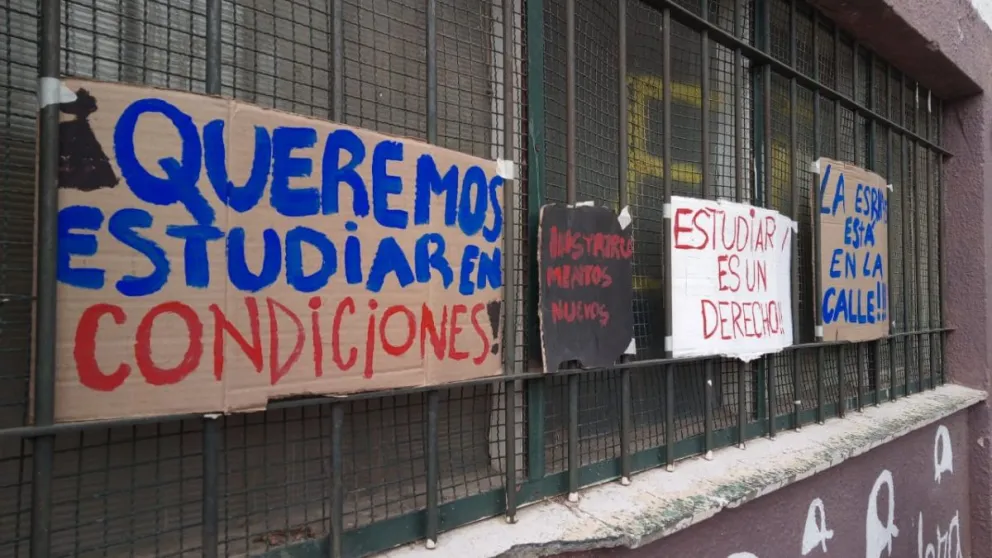 QUEREMOS
ESTUDIAR EN
CONDICIONES!
INSTRU
MENTOS
NUEVOS
ESTUDIAR
ES UN
DERECHO!!
LA
ESTÁ
EN LA
CALLE!!